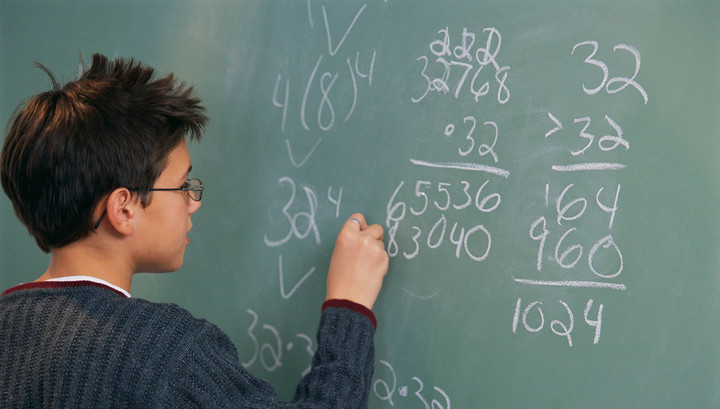 4(8)⁴
32⁴
32·3
2·32
222
32768
·32
65536
83040
32
>32
¹64
960
1024